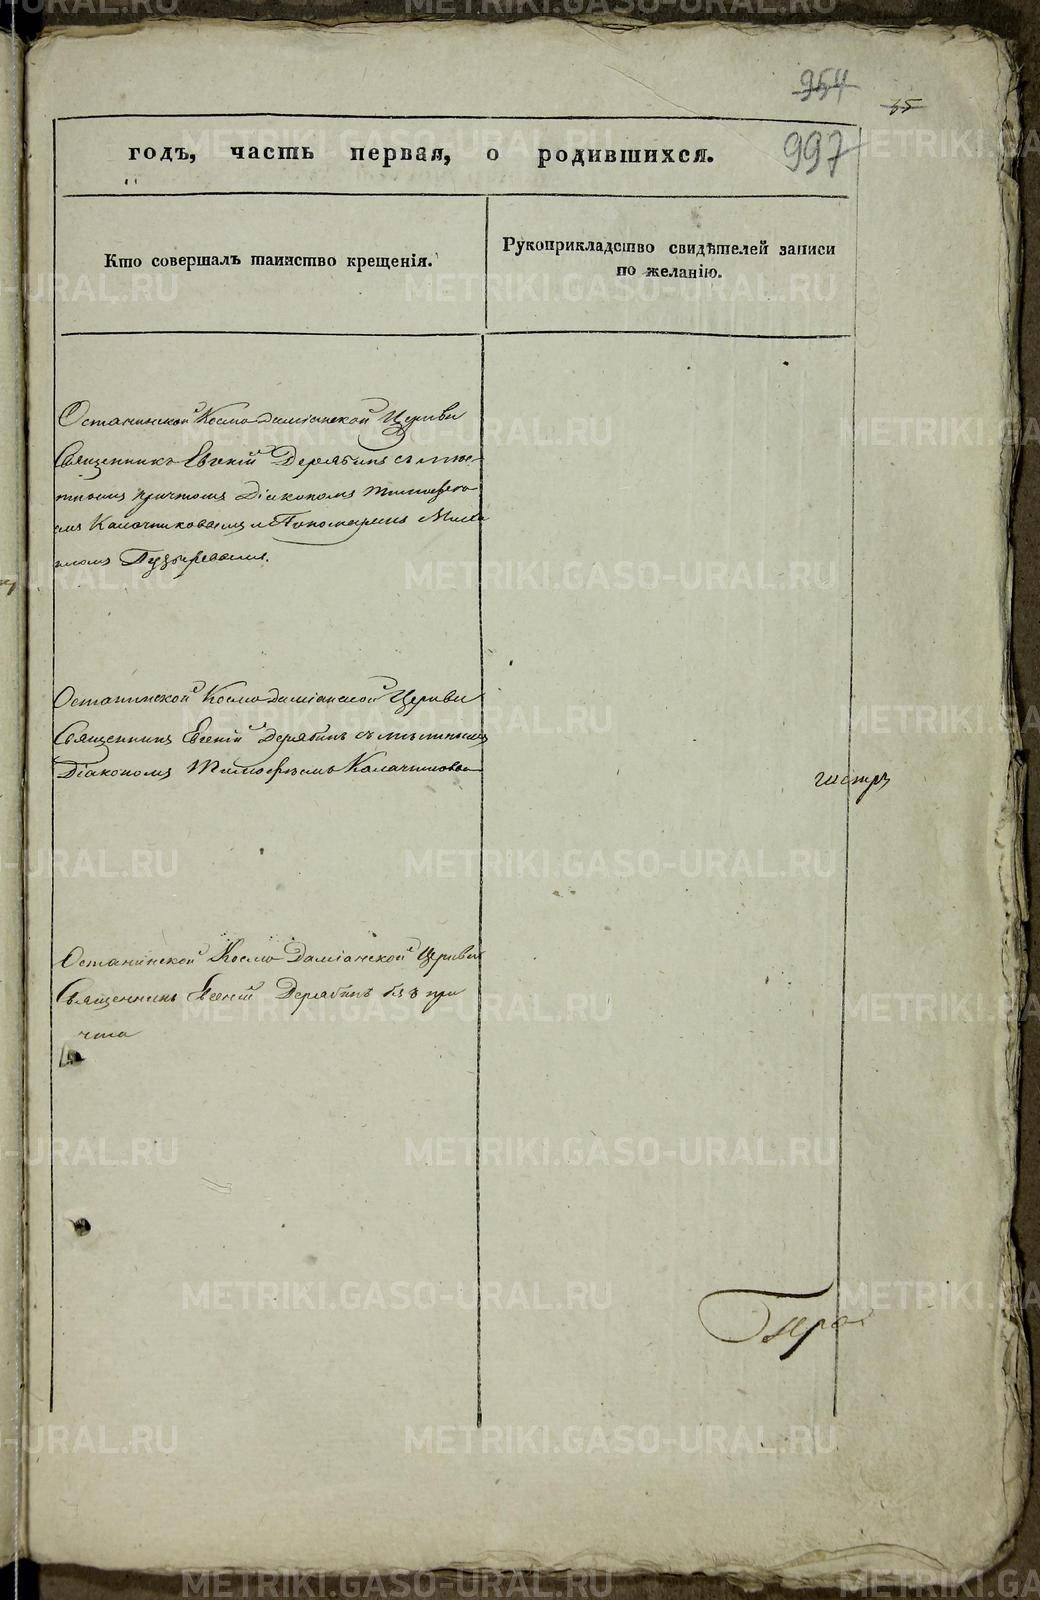 954
55
997
годъ, часть первая, о родившихся.
Кто совершалъ таинство крещенія.
Рукоприкладство свидѣтелей записи
по желанію.
Останинской Космодаміанской Церкви
Священникъ Евгеній Дерябинъ съ мѣс-
тнымъ причтомъ Діакономъ Тимофее-
мъ Калачниковымъ и Пономаремъ
Пузыревымъ.
Останинской Космодаміанской Церкви
Священникъ Евгеній Дерябинъ съ мѣстнымъ
Діакономъ Тимофѣемъ
Останинской Космо Даміанской Церкви
Священникъ Евгеній Дерябинъ безъ при
чта
METRIKI.GASO-URAL.RU